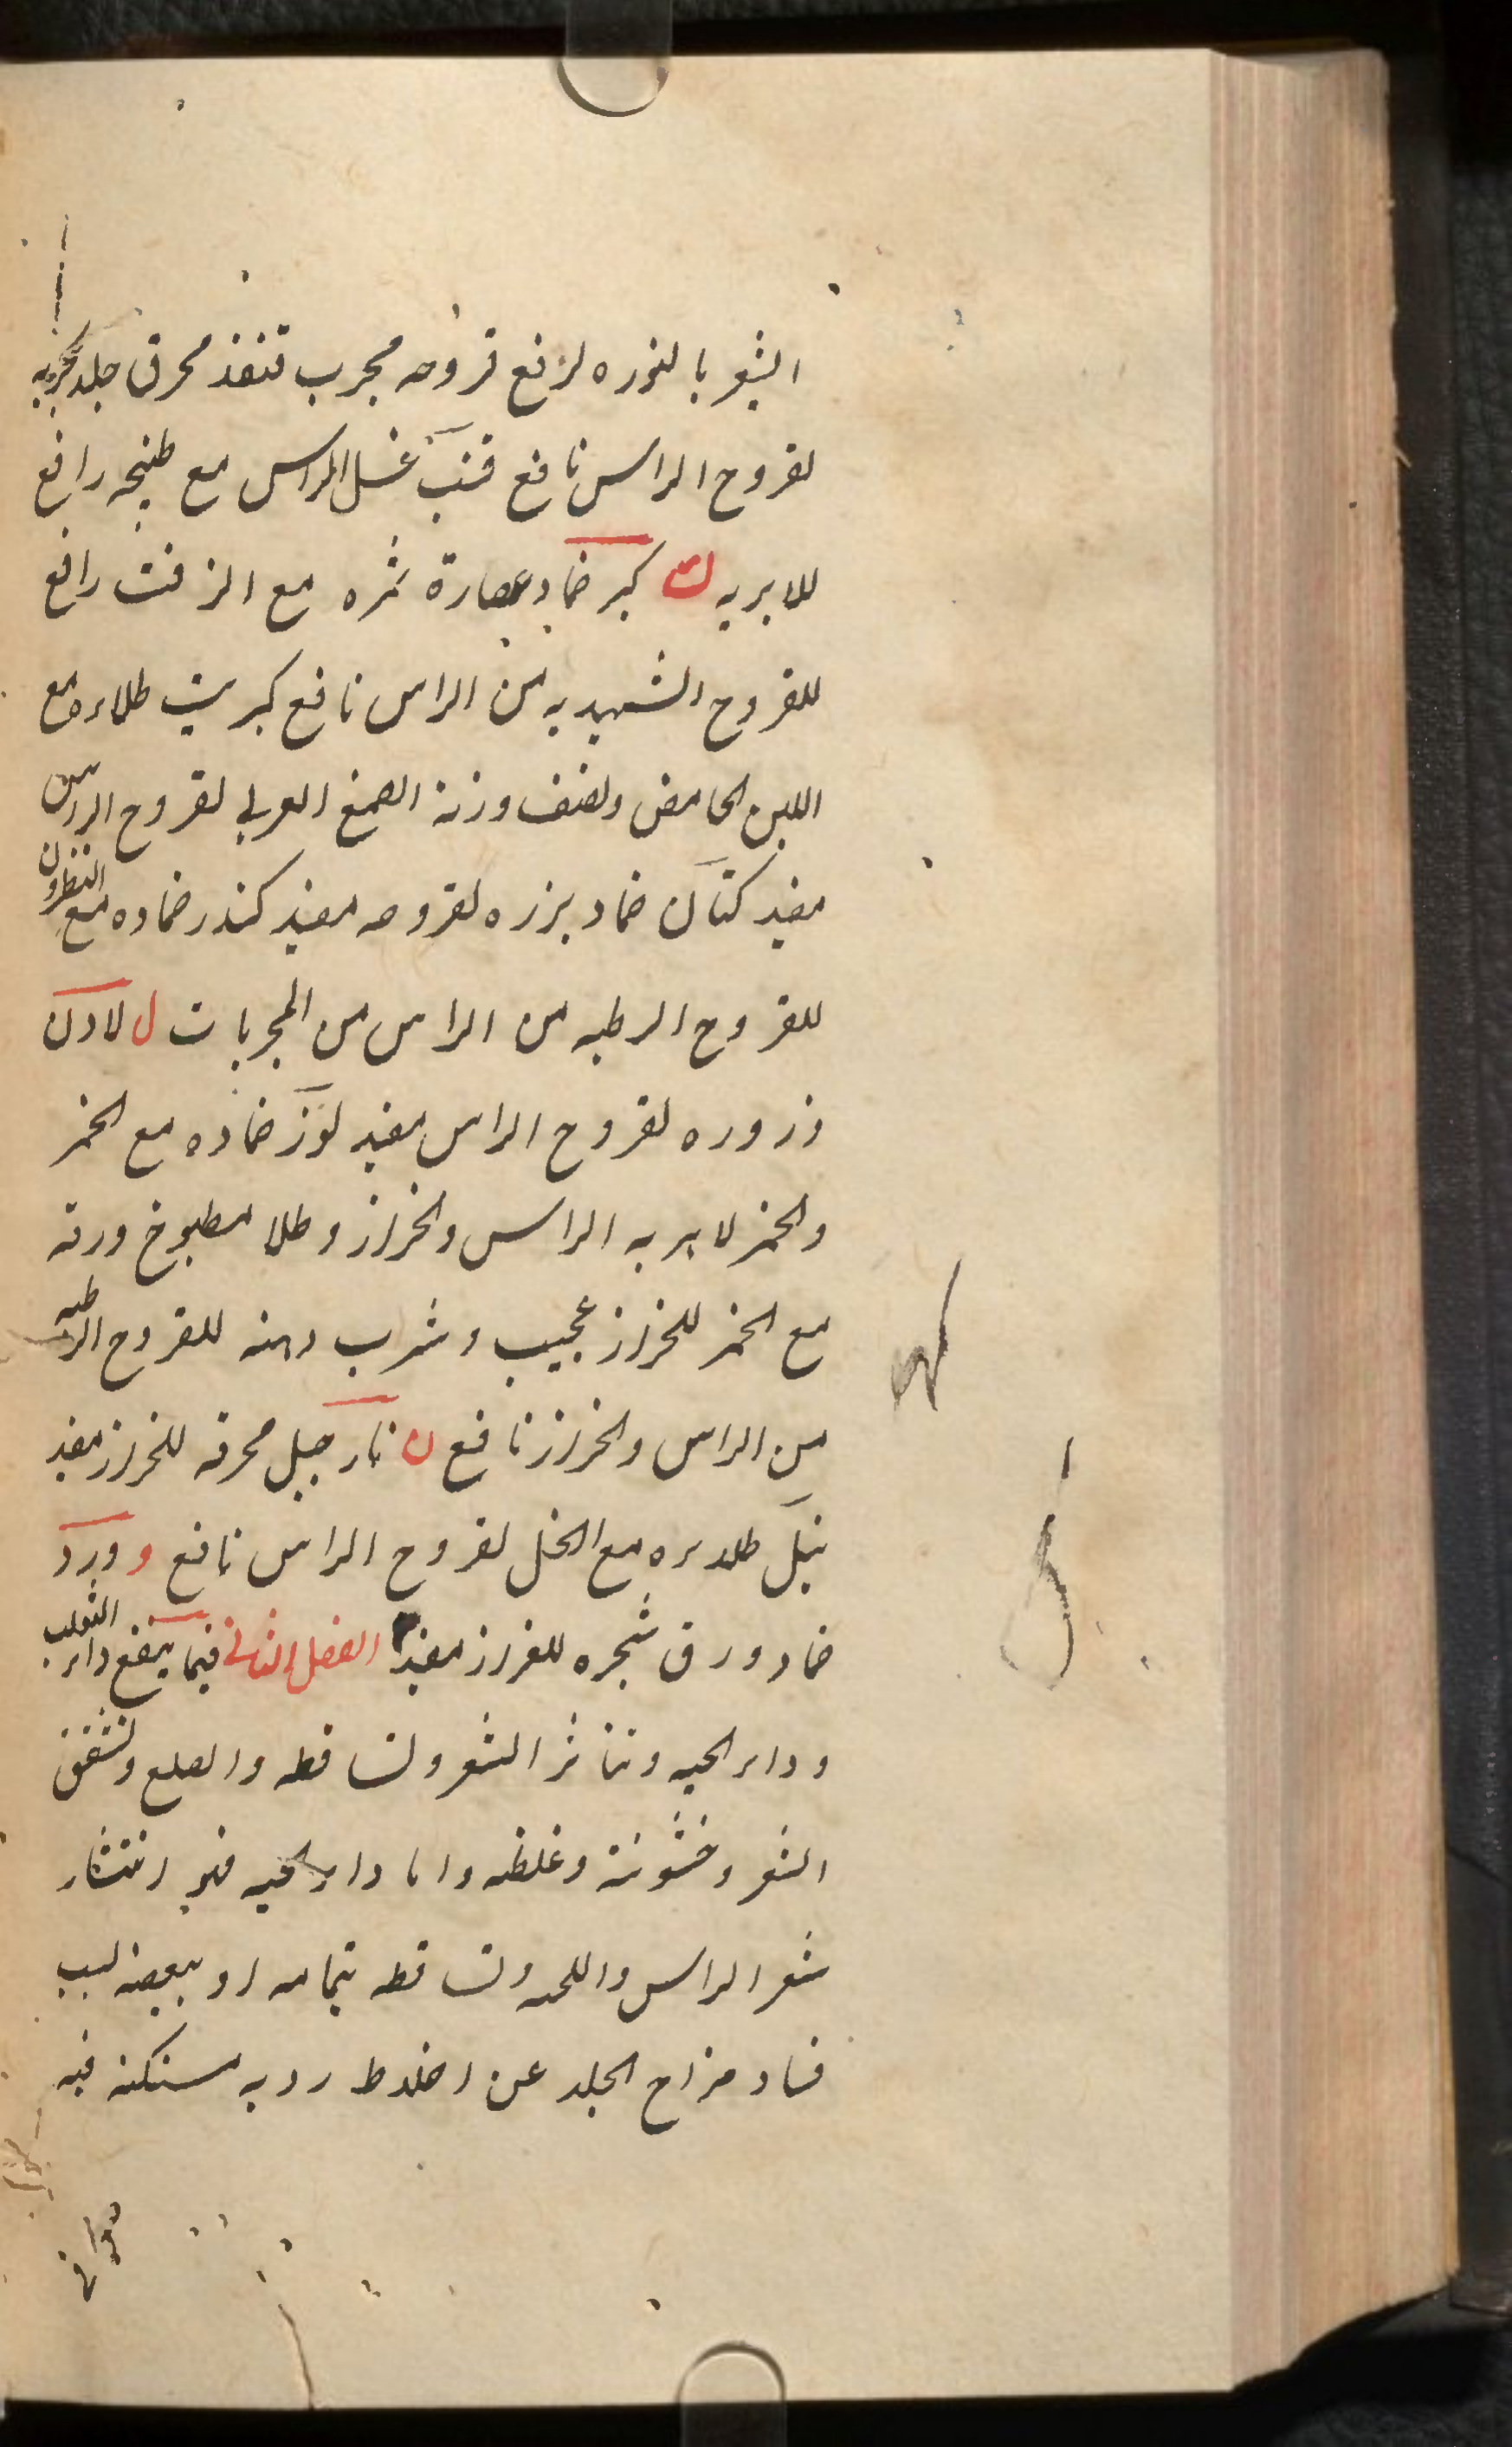 الشعر بالنوره لرفع قروحه مجرب قنفذ محرق جلد بحريه
لقروح الراس نافع قنب غسل الراس مع طبيخه رافع
للابريه ك كبر ضماد عصارة ثمره مع الزفت رافع
للقروح الشهديه من الراس نافع كبريت طلاءه مع
اللبن الحامض ونصف وزنه الصمغ العربى لقروح الراس
مفيد كتان ضماد بزره لقروحه مفيد كندر ضماده مع النطرون
للقروح الرطبه من الراس من المجربات ل لادن
ذروره لقروح الراس مفيد لوز ضماده مع الخمر
والخمر لابريه الراس والحزاز وطلا مطبوخ ورقه
مع الخمر للحزاز عجيب وشرب دهنه للقروح الرطبه
من الراس والحزاز نافع ن نارجيل محرقه للحزاز مفيد
نيل طلاءه مع الخل لقروح الراس نافع و ورد
ضماد ورق شجره للحزاز مفيد الفصل الثانى فيما ينفع داء الثعلب
وداء الحيه وتناثر الشعر وتساقطه والصلع وتشقق
الشعر وخشونته وغلظه واما داء الحيه فهو انتشار
شعر الراس واللحيه وتساقطه بتمامه او ببعضه لسبب
فساد مزاج الجلد عن اخلاط رديه مستكنه فيه